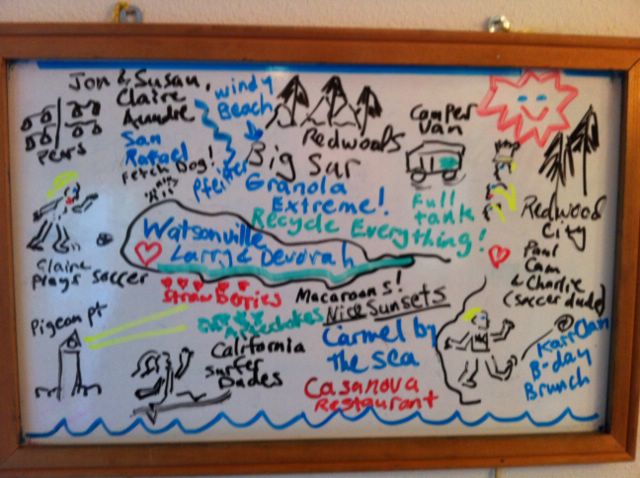 Jon & Susan,
Claire
San
Rafael
Fetch Dog!
Pears
windy
Beach
Pfeiffer
Redwoods
Big Sur
Granola
Extreme!
Recycle Everything!
Camper
Van
Full
tank
Redwood
City
Paul
Cam
& Charlie
(soccer dude)
Watsonville
Larry & Devorah
Claire
plays soccer
Strawberries
Macaroons!
Nice Sunsets
Artechokes
Pigeon pt
California
Surfer
Dudes
Carmel by
the sea
Casanova
Restaurant
B-day
Brunch